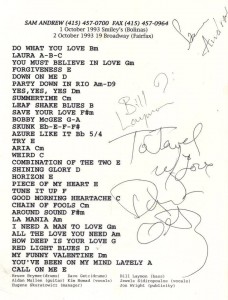 SAM ANDREW (415) 457-0700 FAX (415) 457-0964
1 October 1993 Smiley's (Bolinas)
2 October 1993 19 Broadway (Fairfax)
DO WHAT YOU LOVE Bm
LAURA A-B-C
YOU MUST BELIEVE IN LOVE Gm
FORGIVENESS E
DOWN ON ME D
PARTY DOWN IN RIO Am-D9
YES, YES, YES Dm
SUMMERTIME Cm
LEAF SHAKE BLUES B
SAVE YOUR LOVE F#m
BOBBY McGEE G-A
SKUNK Eb-E-F-F#
ASURE LIKE IT Bb 5/4
TRY E
ARIA Cm
WEIRD C
COMBINATION OF THE TWO E
SHINING GLORY D
HORIZON E
PIECE OF MY HEART E
TUNE IT UP F
GOOD MORNING HEARTACHE C
CHAIN OF FOOLS Cm
AROUND SOUND F#m
LA MANIA Am
I NEED A MAN TO LOVE Gm
ALL THE LOVE YOU NEED Am
HOW DEEP IS YOUR LOVE G
RED LIGHT BLUES D
MY FUNNY VALENTINE Dm
YOU'VE BEEN ON MY MIND LATELY A
CALL ON ME E
Sam Andrew
Bill
Laymon
To
Love
Bill Laymon (bass)